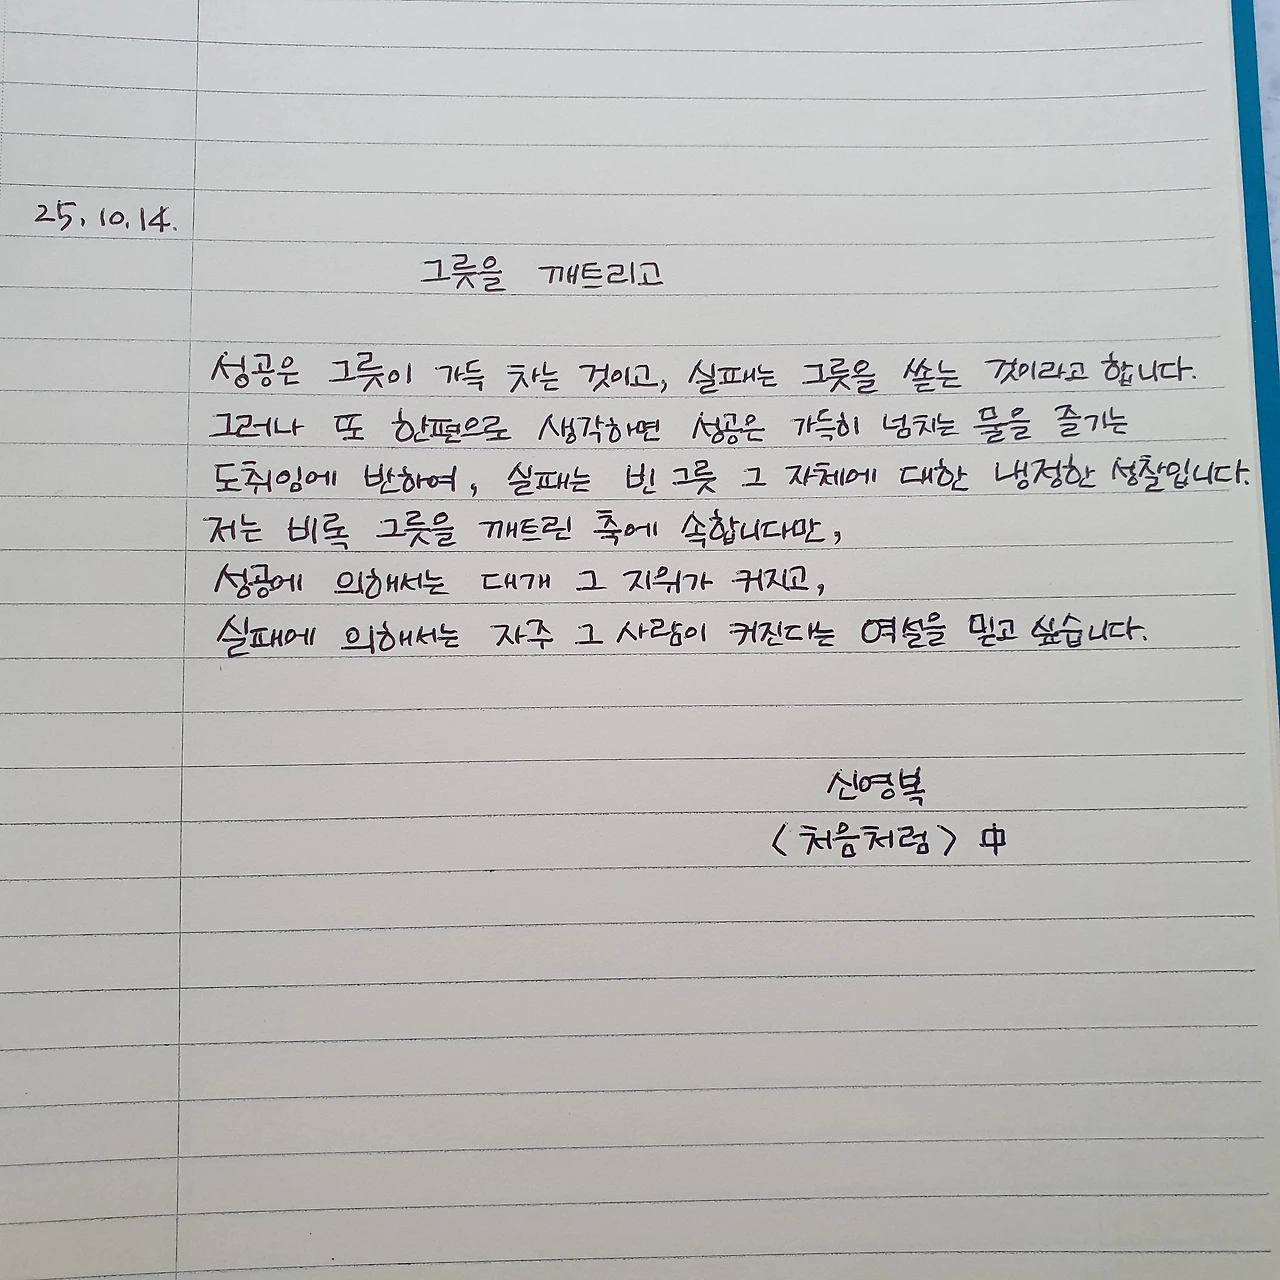 25. 10. 14.
그릇을 깨트리고
성공은 그릇이 가득 차는 것이고, 실패는 그릇을 쏟는 것이라고 합니다.
그러나 또 한편으로 생각하면 성공은 가득히 넘치는 물을 즐기는
도취임에 반하여, 실패는 빈 그릇 그 자체에 대한 냉정한 성찰입니다.
저는 비록 그릇을 깨트린 축에 속합니다만,
성공에 의해서는 대개 그 지위가 커지고,
실패에 의해서는 자주 그 사람이 커진다는 역설을 믿고 싶습니다.
신영복
〈처음처럼〉 中